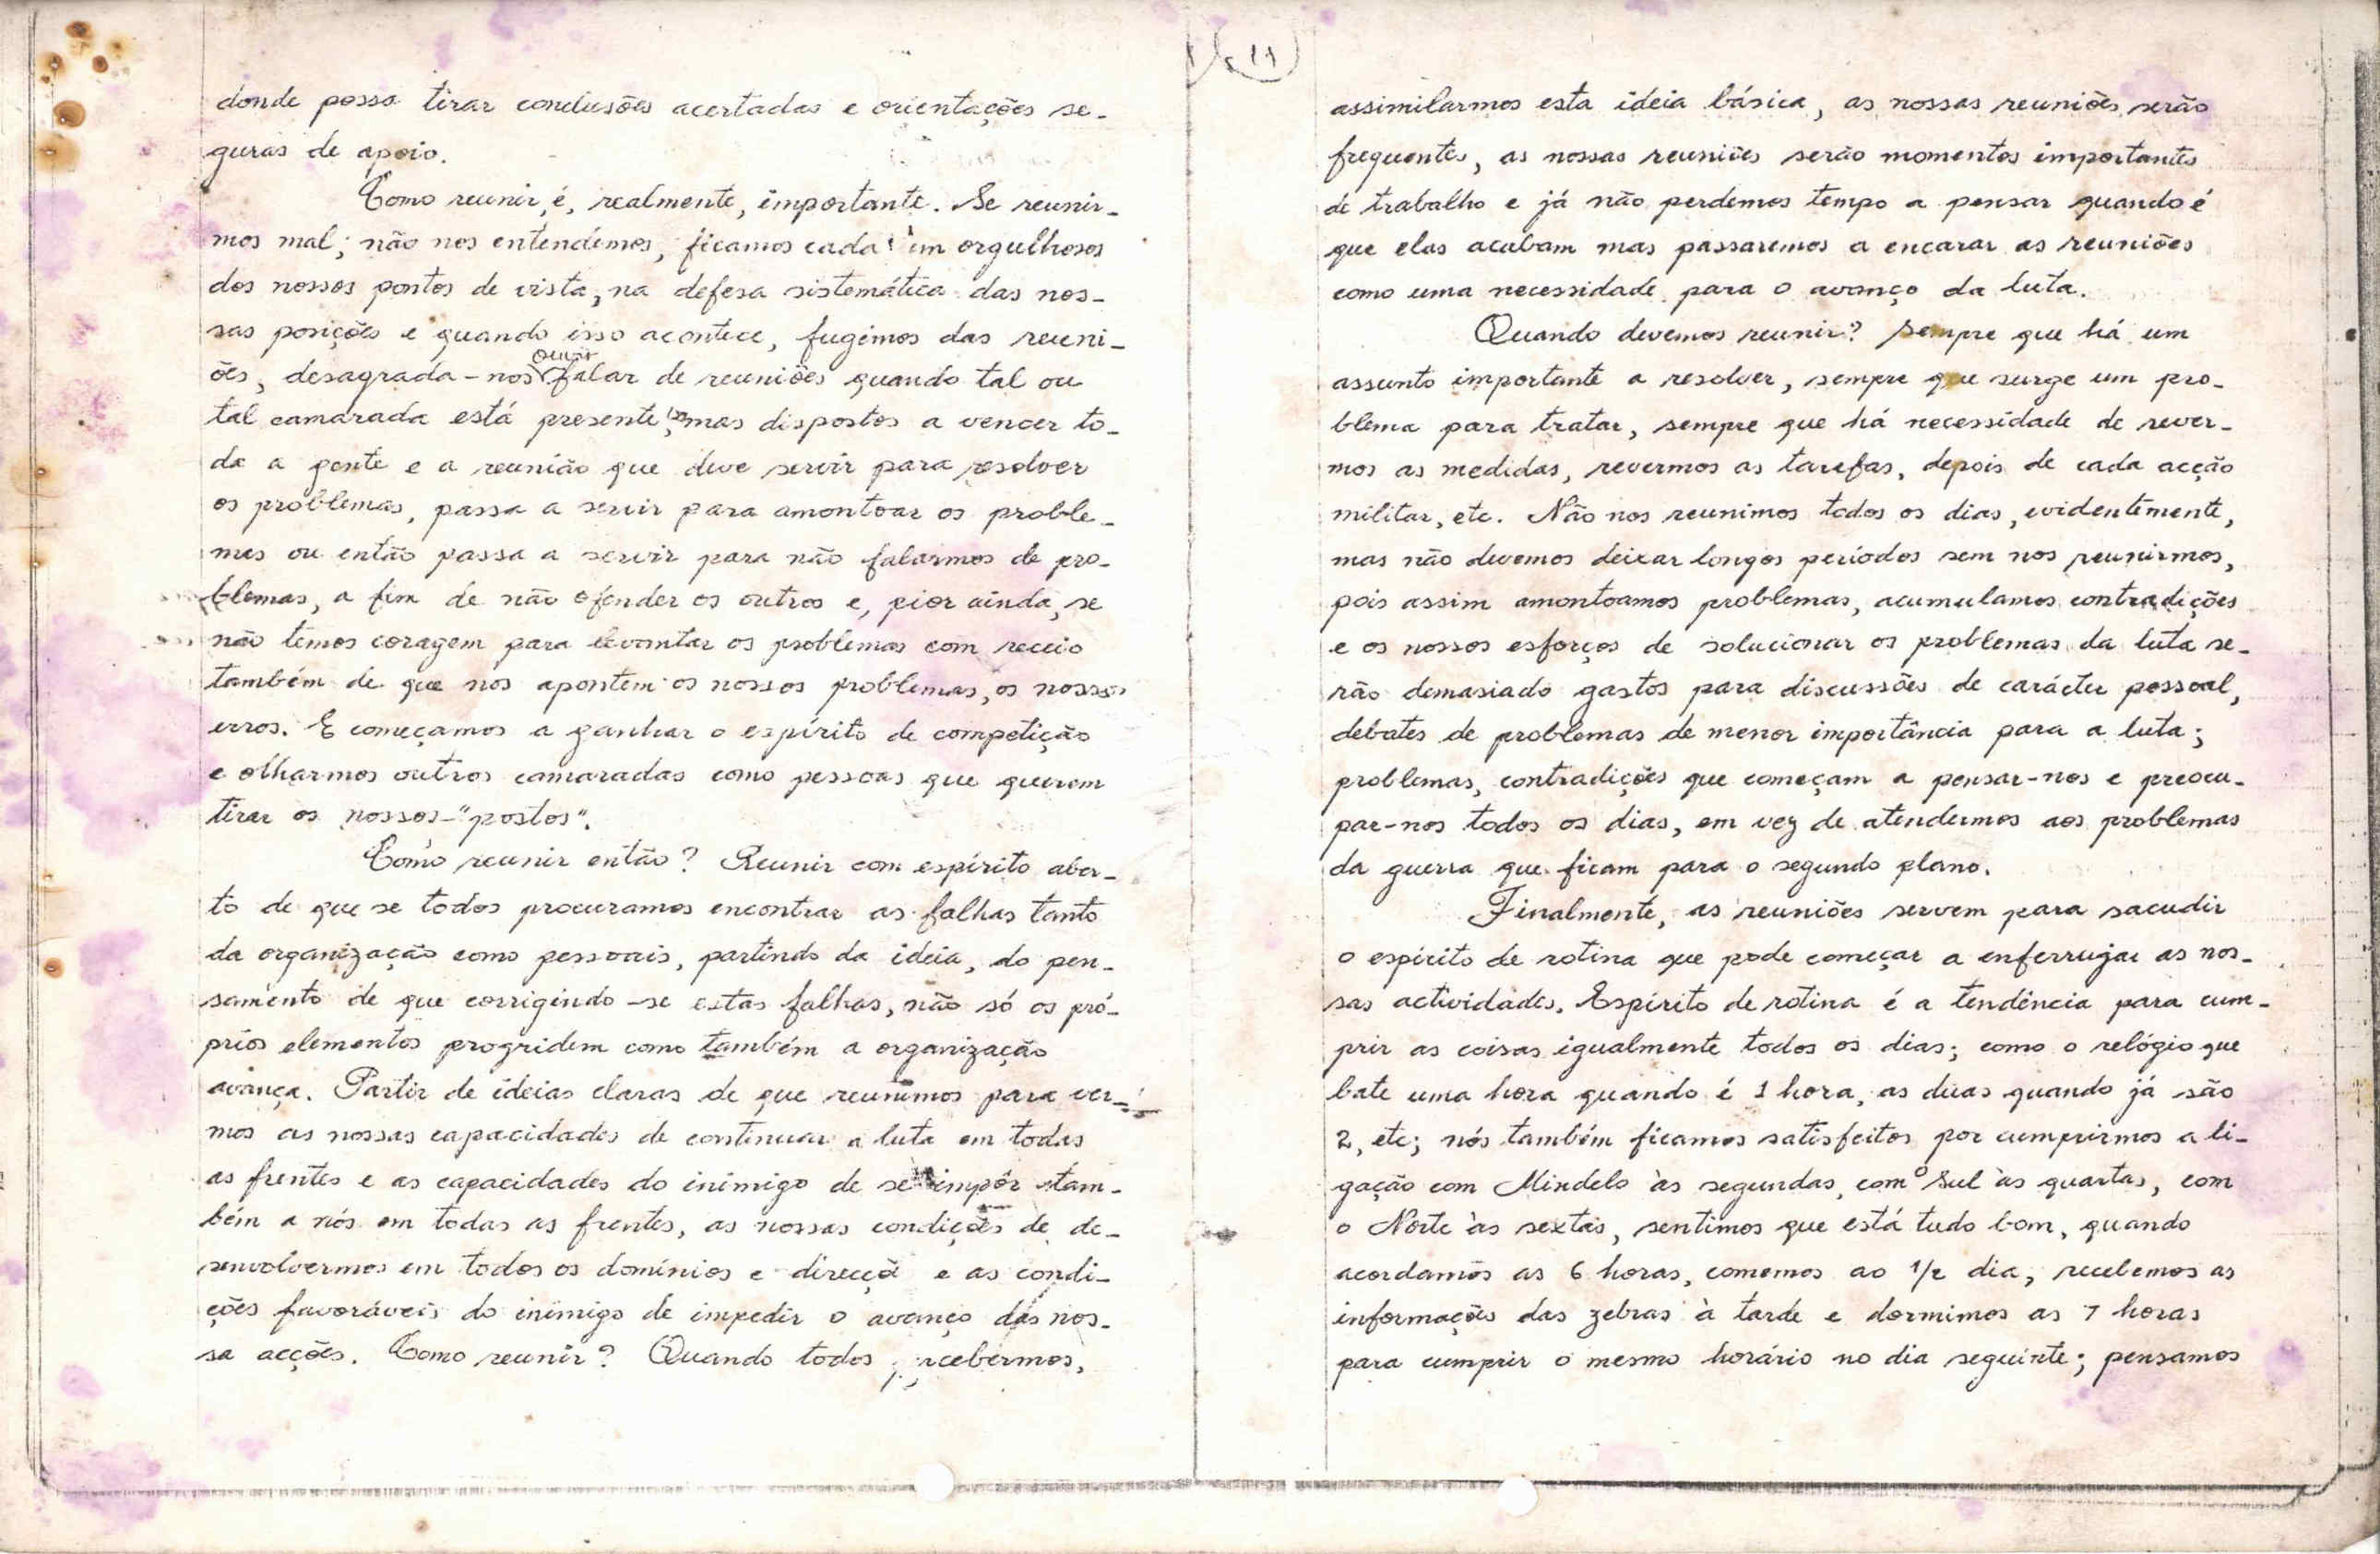 11
donde possa tirar conclusões acertadas e orientações se-
guras de apoio.
Como reunir, é, realmente, importante. Se reunir-
mos mal; não nos entendemos, ficamos cada um orgulhosos
dos nossos pontos de vista, na defesa sistemática das nos-
sas posições e quando isso acontece, fugimos das reuni-
ões, desagrada-nos ouvir falar de reuniões quando tal ou
tal camarada está presente, mas dispostos a vencer to-
da a gente e a reunião que deve servir para resolver
os problemas, passa a servir para amontoar os proble-
mas ou então passa a servir para não falarmos de pro-
blemas, a fim de não ofender os outros e, pior ainda, se
não temos coragem para levantar os problemas com receio
também de que nos apontem os nossos problemas, os nossos
erros. E começamos a ganhar o espírito de competição
e olharmos outros camaradas como pessoas que querem
tirar os nossos-"postos".
Como reunir então? Reunir com espírito aber-
to de que se todos procuramos encontrar as falhas tanto
da organização como pessoais, partindo da ideia, do pen-
samento de que corrigindo-se estas falhas, não só os pró-
prios elementos progridem como também a organização
avança. Partir de ideias claras de que reunimos para ver-
mos as nossas capacidades de continuar a luta em todas
as frentes e as capacidades do inimigo de se impôr tam-
bém a nós em todas as frentes, as nossas condições de de-
senvolvermos em todos os domínios e direcçã e as condi-
ções favoráveis do inimigo de impedir o avanço das nos-
sa acções. Como reunir? Quando todos percebermos,
assimilarmos esta ideia básica, as nossas reuniões serão
frequentes, as nossas reuniões serão momentos importantes
de trabalho e já não perdemos tempo a pensar quando é
que elas acabam mas passaremos a encarar as reuniões
como uma necessidade para o avanço da luta.
Quando devemos reunir? Sempre que há um
assunto importante a resolver, sempre que surge um pro-
blema para tratar, sempre que há necessidade de rever-
mos as medidas, revermos as tarefas, depois de cada acção
militar, etc. Não nos reunimos todos os dias, evidentemente,
mas não devemos deixar longos períodos sem nos reunirmos,
pois assim amontoamos problemas, acumulamos contradições
e os nossos esforços de solucionar os problemas da luta se-
rão demasiado gastos para discussões de carácter pessoal,
debates de problemas de menor importância para a luta;
problemas, contradições que começam a pensar-nos e preocu-
par-nos todos os dias, em vez de atendermos aos problemas
da guerra que ficam para o segundo plano.
Finalmente, as reuniões servem para sacudir
o espírito de rotina que pode começar a enferrujar as nos-
sas actividades. Espírito de rotina é a tendência para cum-
prir as coisas igualmente todos os dias; como o relógio que
bate uma hora quando é 1 hora, as duas quando já são
2, etc; nós também ficamos satisfeitos por cumprirmos a li-
gação com Mindelo às segundas, com o Sul às quartas, com
o Norte às sextas, sentimos que está tudo bom, quando
acordamos as 6 horas, comemos ao 1/2 dia, recebemos as
informações das zebras à tarde e dormimos as 7 horas
para cumprir o mesmo horário no dia seguinte; pensamos